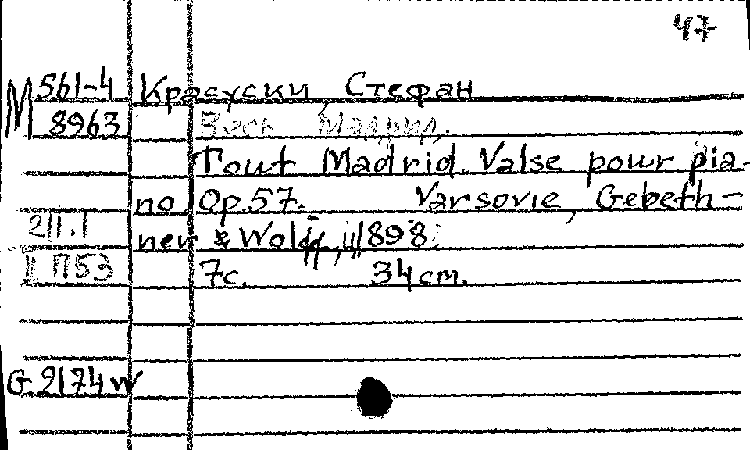 47
M 561-4 Красуски, Стефан
8963 Весь Мадрид.
Tout Madrid. Valse pour pia-
no Op.57. Varsovie, Gebeth-
211.1 ner & Wolff, 1898.
П53 7с. 34 cm.
G.2174W